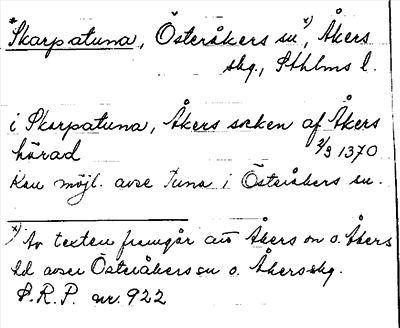 *Skarpatuna, Österåkers sn *), Åkers
skg., Sthlms l.
i Skarpatuna, Åkers socken af Åkers
härad 2/3 1370
Kan möjl. avse Tuna i Österåkers sn.
*) Av texten framgår att Åkers sn o. Åkers
hd avser Österåkers sn o. Åkers skg.
S.R.P. nr. 922